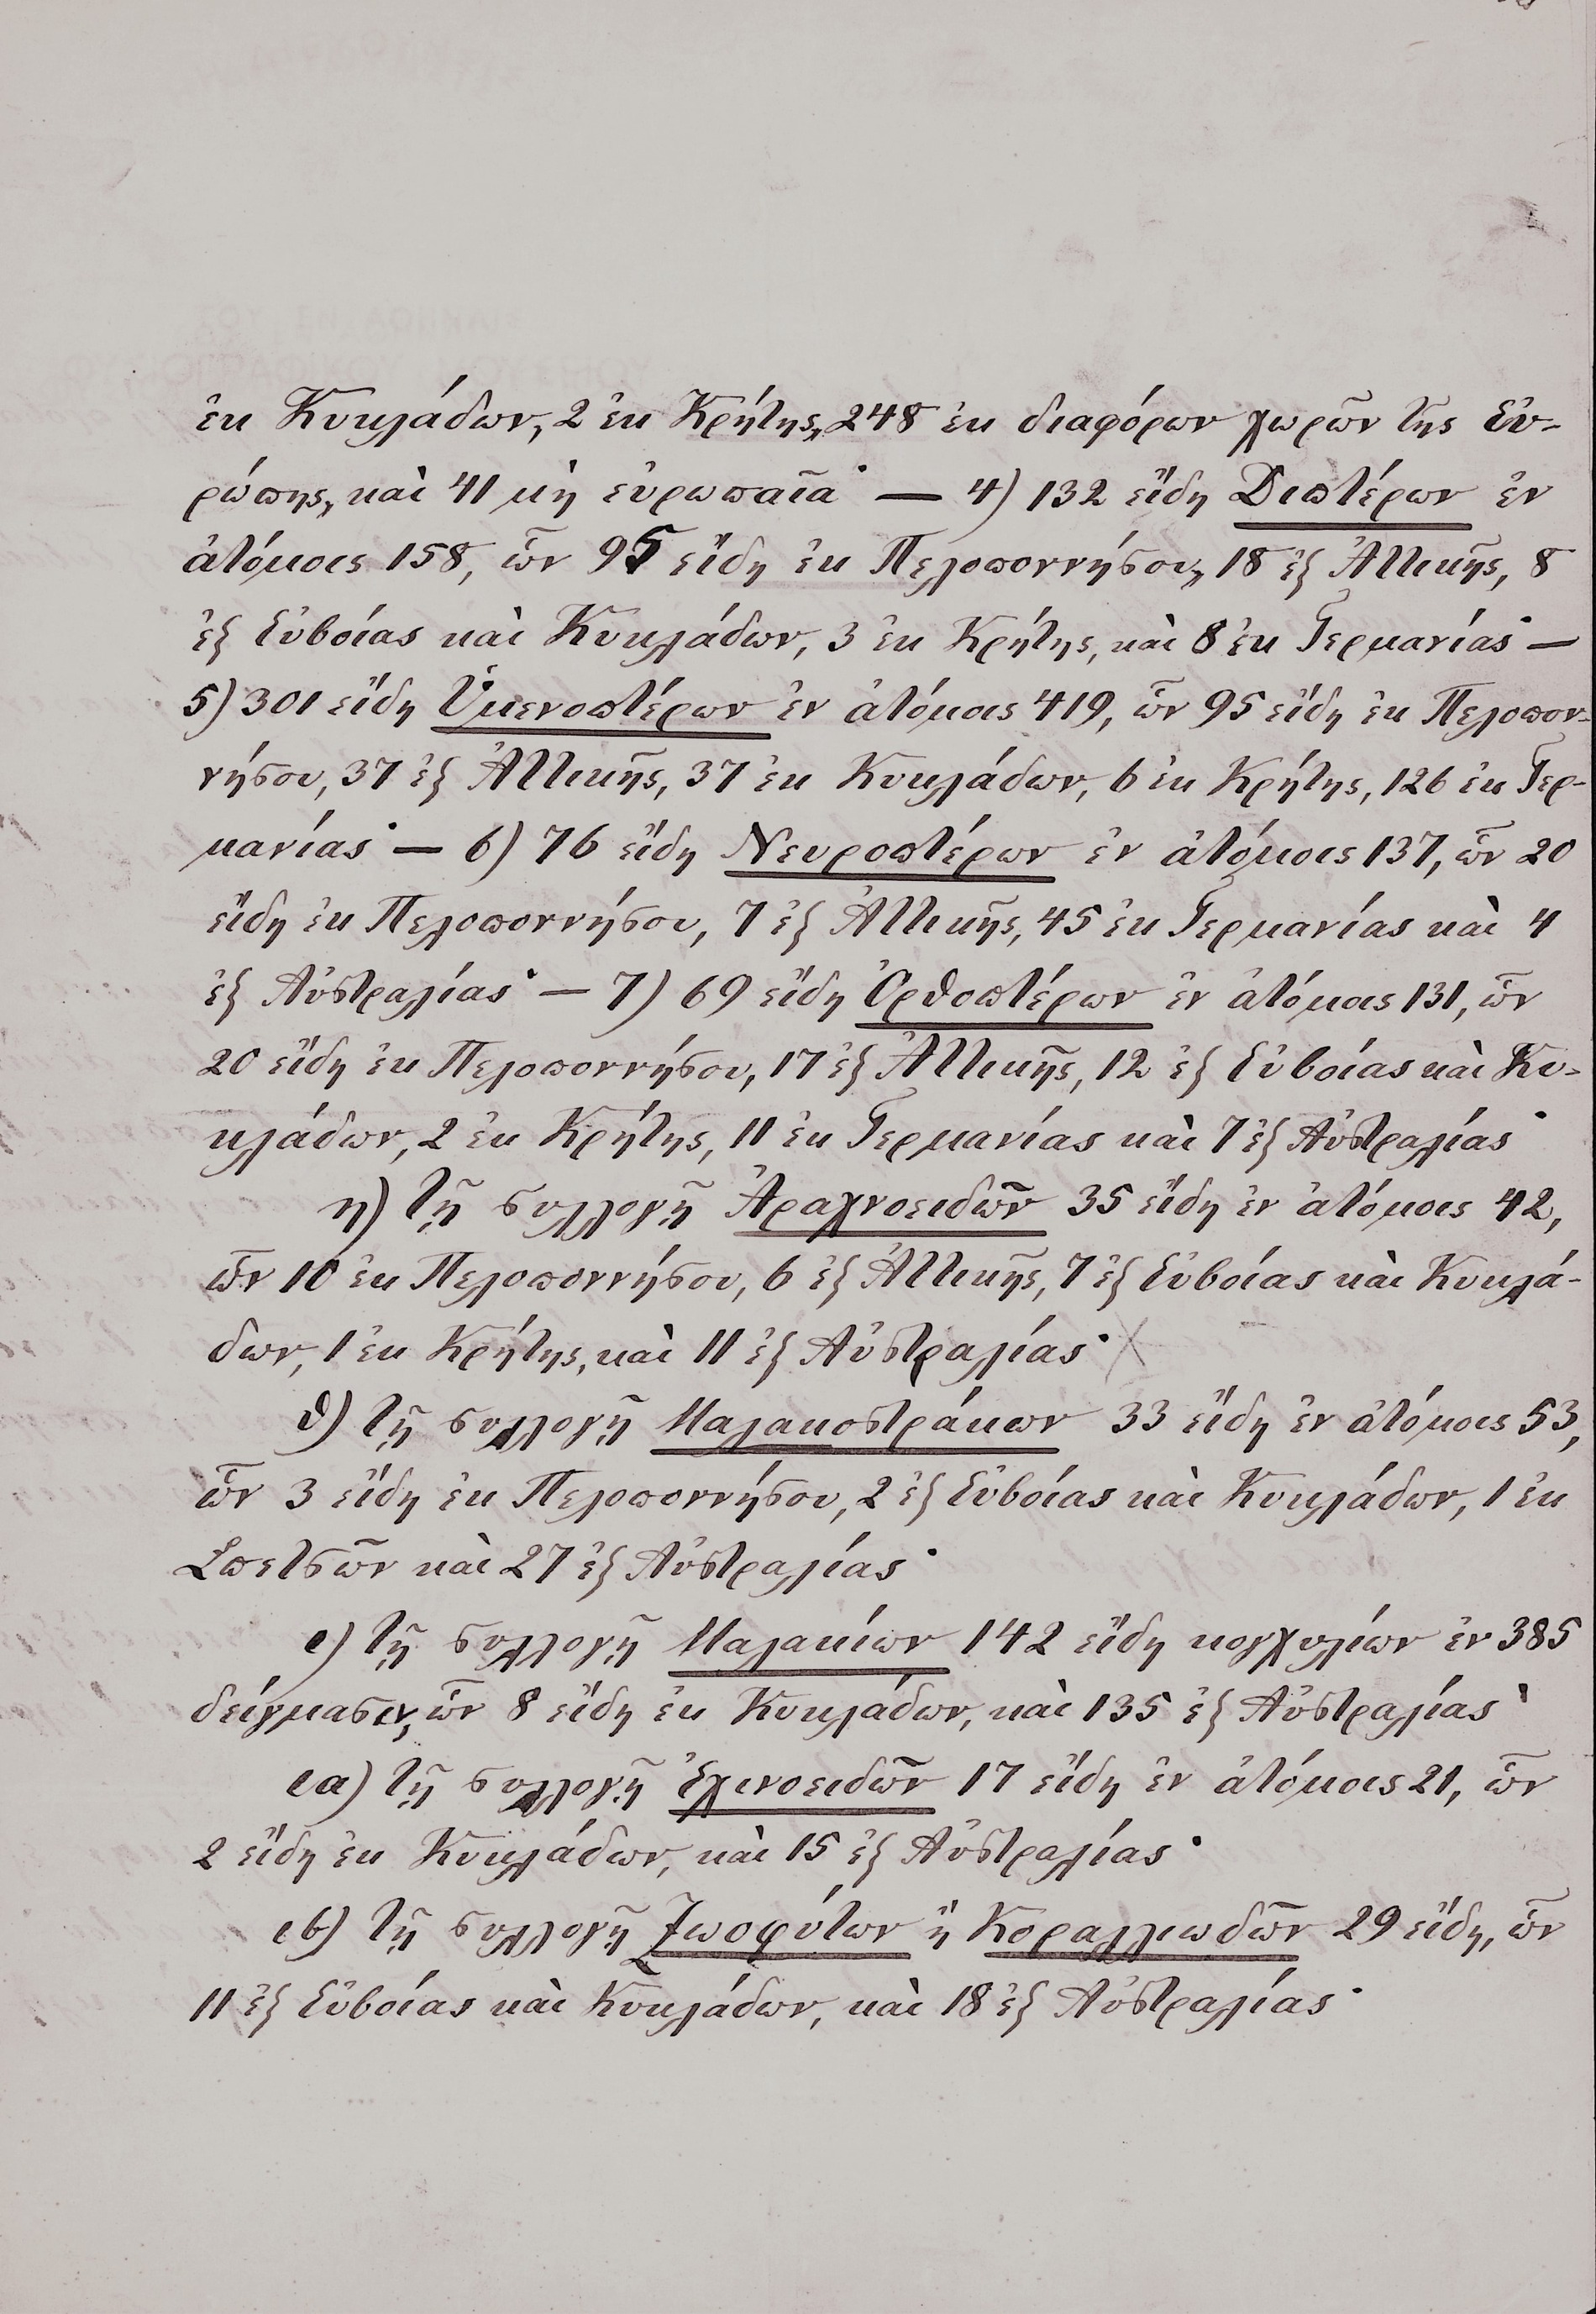 ἐκ Κυκλάδων, 2 ἐκ Κρήτης, 248 ἐκ διαφόρων χωρῶν τῆς Εὐ-
ρώπης, καὶ 41 μὴ εὐρωπαῖα· — 4) 132 εἴδη Διπτέρων ἐν
ἀτόμοις 158, ὧν 95 εἴδη ἐκ Πελοποννήσου, 18 ἐξ Ἀττικῆς, 8
ἐξ Εὐβοίας καὶ Κυκλάδων, 3 ἐκ Κρήτης, καὶ 8 ἐκ Γερμανίας· —
5) 301 εἴδη Ὑμενοπτέρων ἐν ἀτόμοις 419, ὧν 95 εἴδη ἐκ Πελοπον-
νήσου, 37 ἐξ Ἀττικῆς, 37 ἐκ Κυκλάδων, 6 ἐκ Κρήτης, 126 ἐκ Γερ-
μανίας· — 6) 76 εἴδη Νευροπτέρων ἐν ἀτόμοις 137, ὧν 20
εἴδη ἐκ Πελοποννήσου, 7 ἐξ Ἀττικῆς, 45 ἐκ Γερμανίας καὶ 4
ἐξ Αὐστραλίας· — 7) 69 εἴδη Ὀρθοπτέρων ἐν ἀτόμοις 131, ὧν
20 εἴδη ἐκ Πελοποννήσου, 17 ἐξ Ἀττικῆς, 12 ἐξ Εὐβοίας καὶ Κυ-
κλάδων, 2 ἐκ Κρήτης, 11 ἐκ Γερμανίας καὶ 7 ἐξ Αὐστραλίας·
η) τῇ συλλογῇ Ἀραχνοειδῶν 35 εἴδη ἐν ἀτόμοις 42,
ὧν 10 ἐκ Πελοποννήσου, 6 ἐξ Ἀττικῆς, 7 ἐξ Εὐβοίας καὶ Κυκλά-
δων, 1 ἐκ Κρήτης, καὶ 11 ἐξ Αὐστραλίας·
θ) τῇ συλλογῇ Μαλακοστράκων 33 εἴδη ἐν ἀτόμοις 53,
ὧν 3 εἴδη ἐκ Πελοποννήσου, 2 ἐξ Εὐβοίας καὶ Κυκλάδων, 1 ἐκ
Σπετσῶν καὶ 27 ἐξ Αὐστραλίας·
ι) τῇ συλλογῇ Μαλακίων 142 εἴδη κογχυλίων ἐν 385
δείγμασιν, ὧν 8 εἴδη ἐκ Κυκλάδων, καὶ 135 ἐξ Αὐστραλίας·
ια) τῇ συλλογῇ Ἐχινοειδῶν 17 εἴδη ἐν ἀτόμοις 21, ὧν
2 εἴδη ἐκ Κυκλάδων, καὶ 15 ἐξ Αὐστραλίας·
ιβ) τῇ συλλογῇ Ζωοφύτων ἢ Κοραλλιωδῶν 29 εἴδη, ὧν
11 ἐξ Εὐβοίας καὶ Κυκλάδων, καὶ 18 ἐξ Αὐστραλίας·